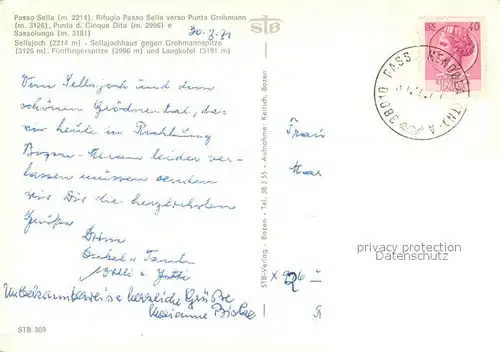 Passo Sella (m. 2214). Rifugio Passo Sella verso Punta Grohmann
(m. 3126), Punta d. Cinque Dita (m. 2996) e
Sassolungo (m. 3181)
Sellajoch (2214 m) - Sellajochhaus gegen Grohmannspitze
(3126 m), Fünffingerspitze (2996 m) und Langkofel (3181 m)
STB
Vom Sellajoch und dem
schönen Grödnertal, das
wir heute in Richtung
Bozen-Meran leider ver-
lassen müssen senden
wir Dir die herzlichsten
Grüße
Onkel u Tante
Unbekannterweise herzliche Grüße
Marianne
STB-369
STB-Verlag - Bozen - Tel. 38 3 55 - Aufnahme: Kelich, Bozen
40
38010 PASS
privacy protection
Datenschutz